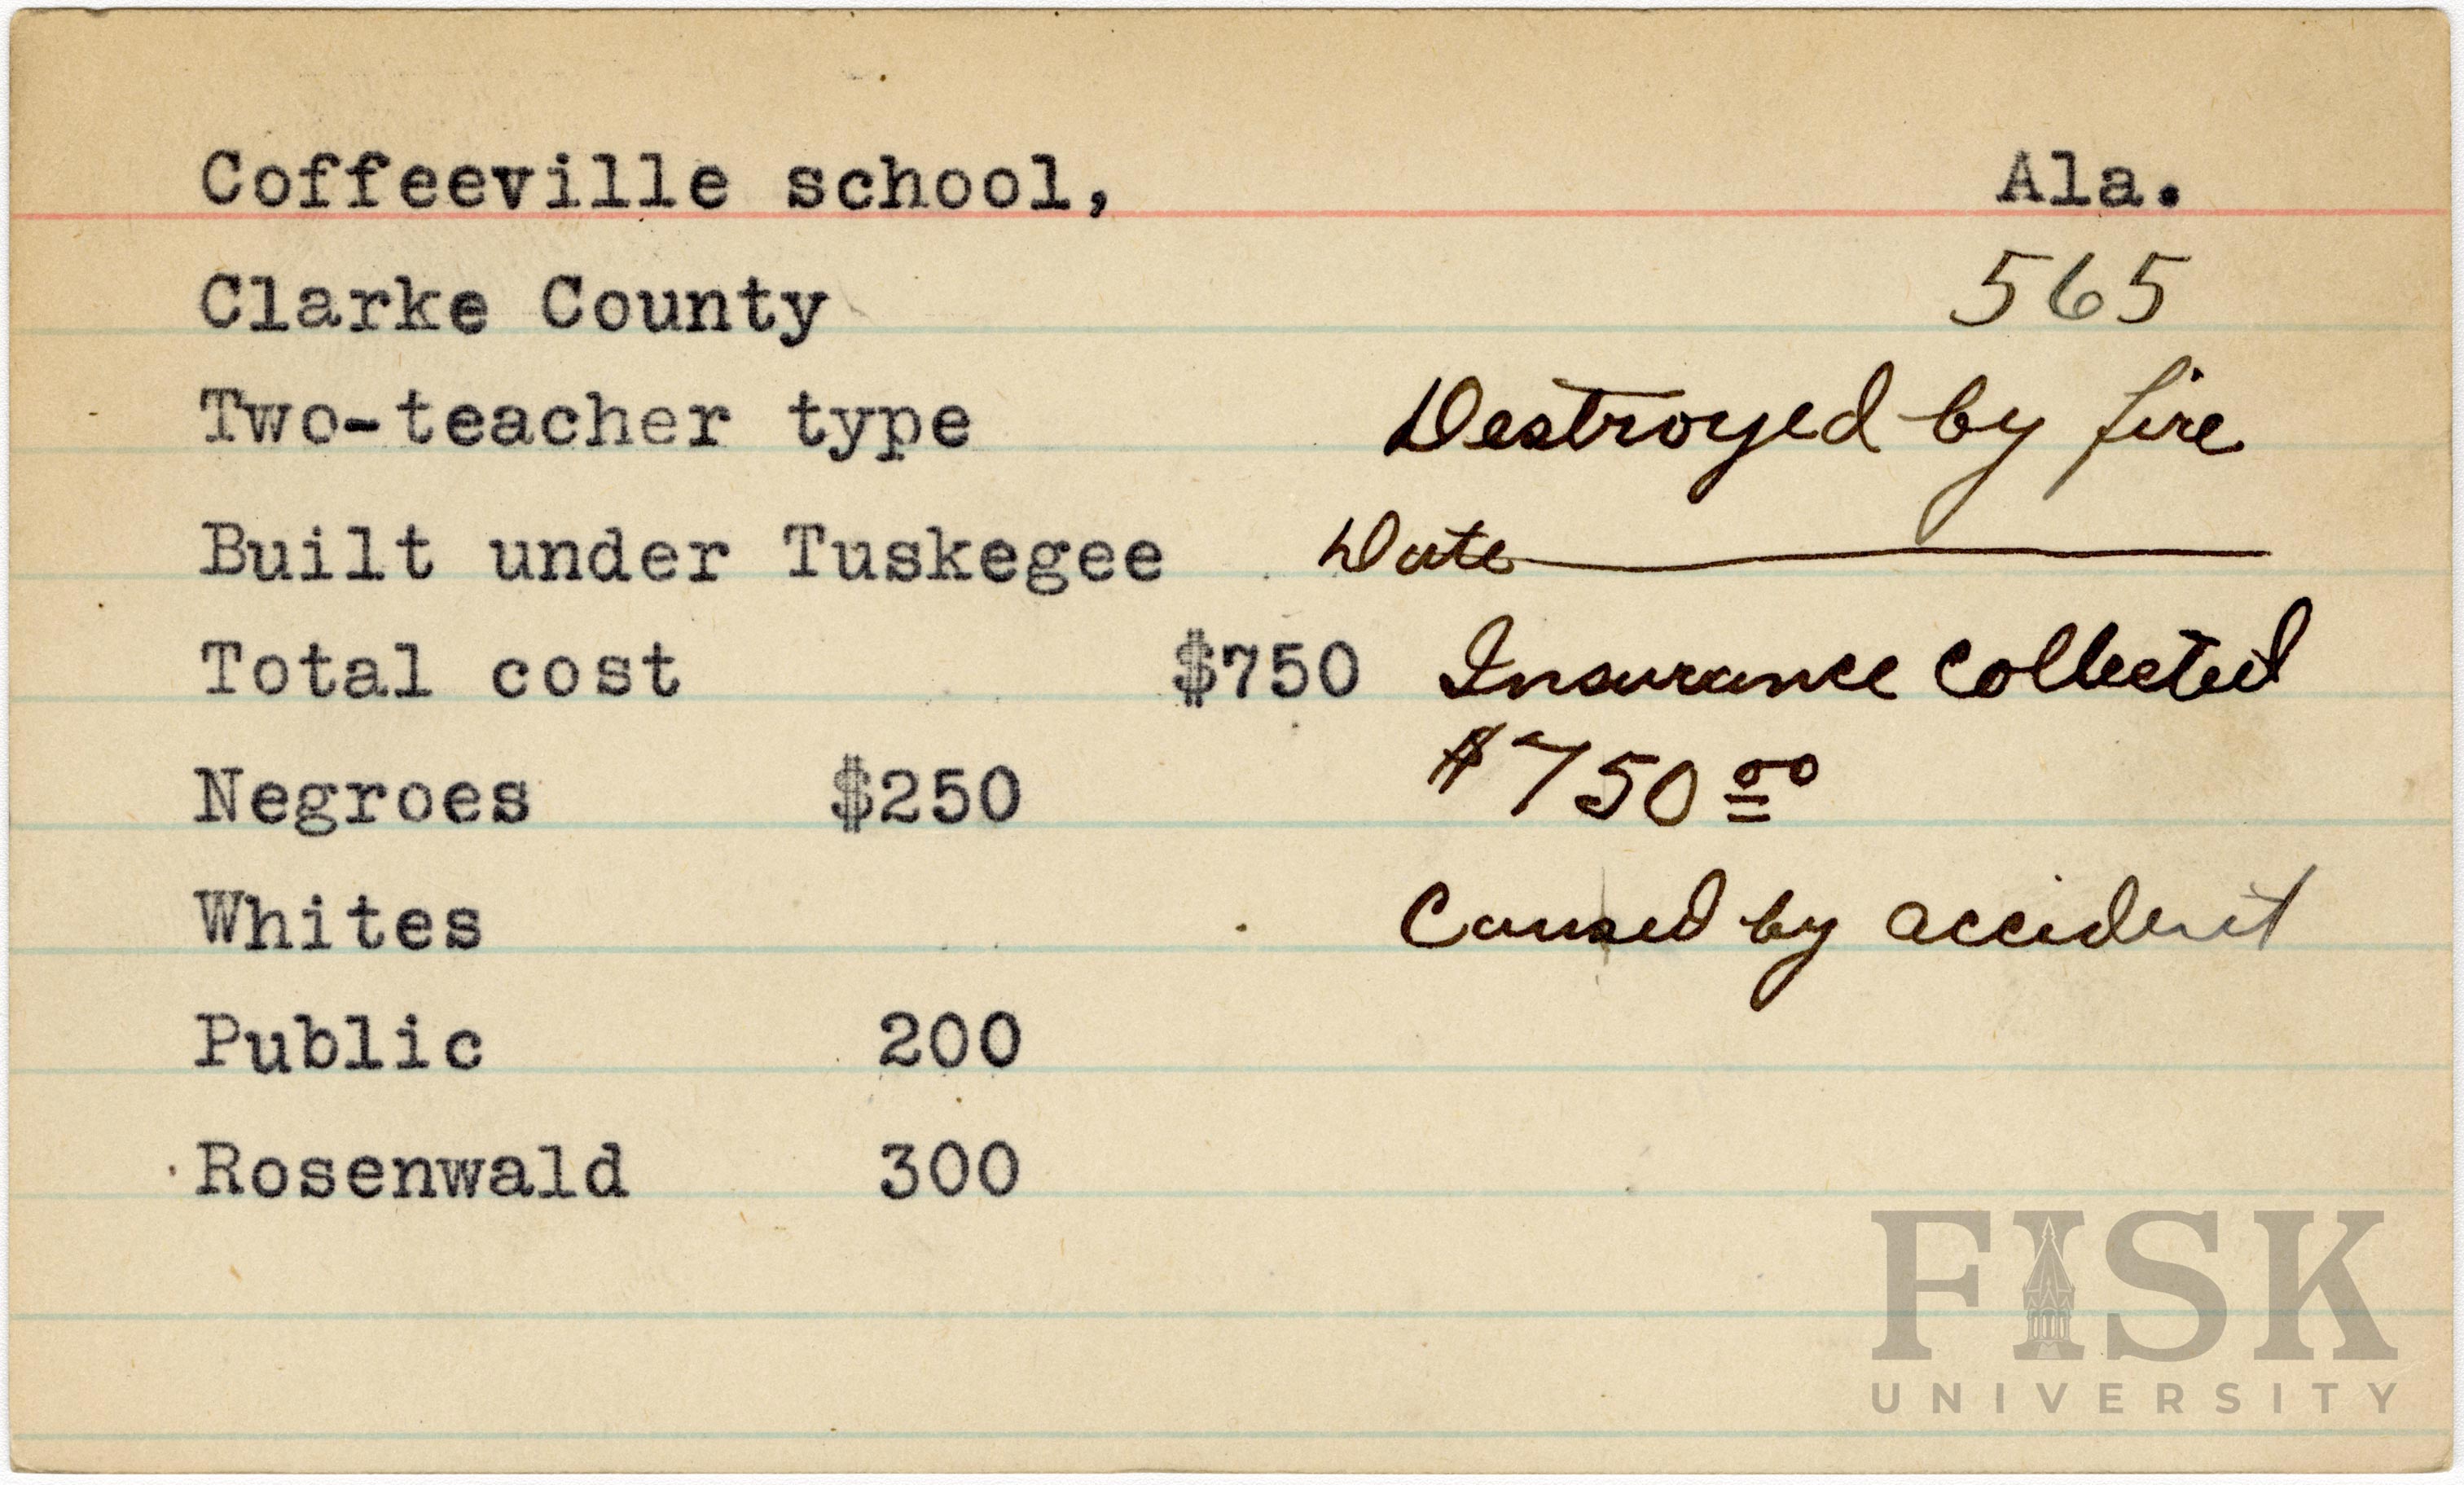 Coffeeville school, Ala.
Clarke County 565
Two-teacher type Destroyed by fire
Built under Tuskegee Date
Total cost $750 Insurance collected
Negroes $250 $750 00
Whites Caused by accident
Public 200
Rosenwald 300
FISK
UNIVERSITY